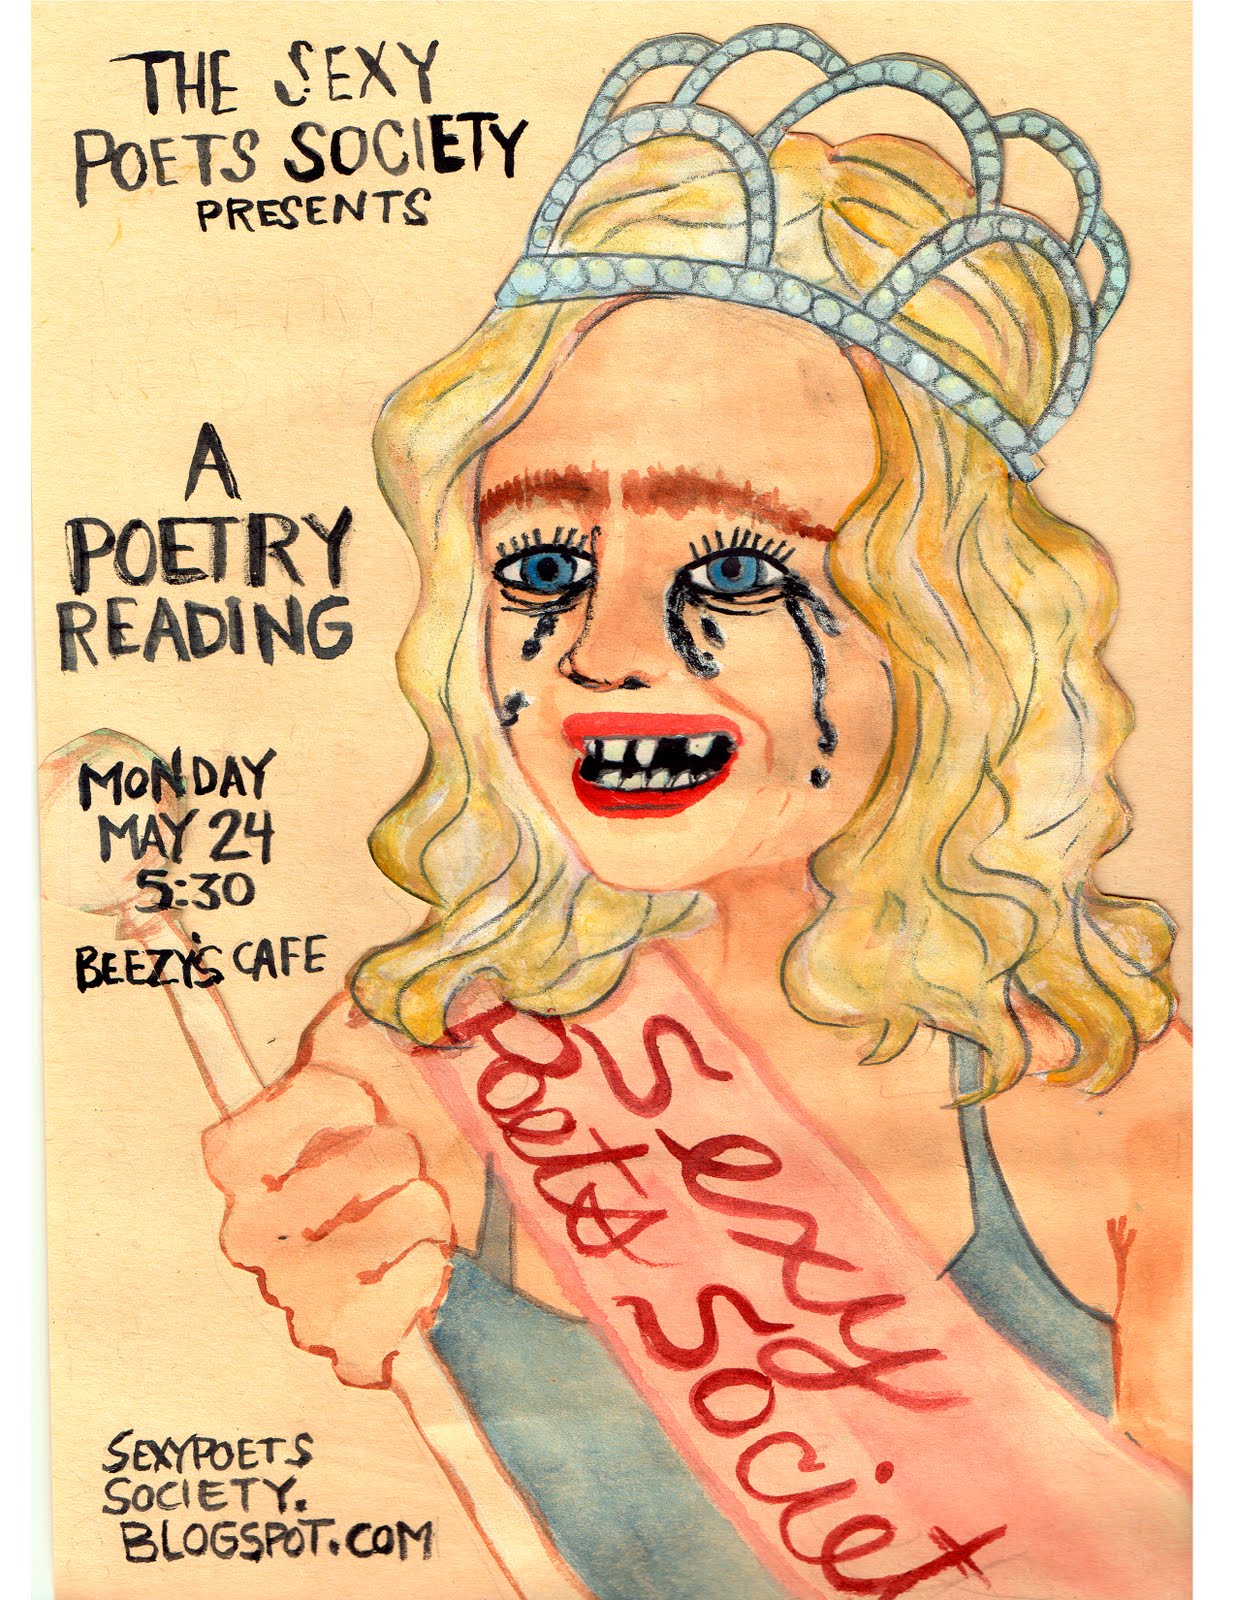 THE SEXY
POETS SOCIETY
PRESENTS
A
POETRY
READING
MONDAY
MAY 24
5:30
BEEZY'S CAFE
Sexy
Poets Societ
SEXYPOETS
SOCIETY.
BLOGSPOT.COM